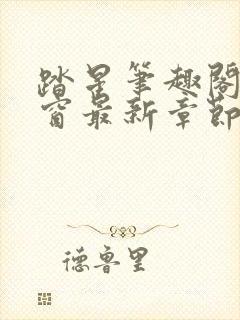 踏星笔趣阁
窗最新章节
德鲁里